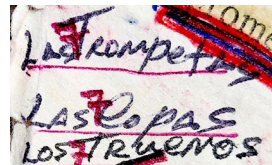 ome
Las 7 Trompetas
Las 7 Copas
Los 7 Truenos